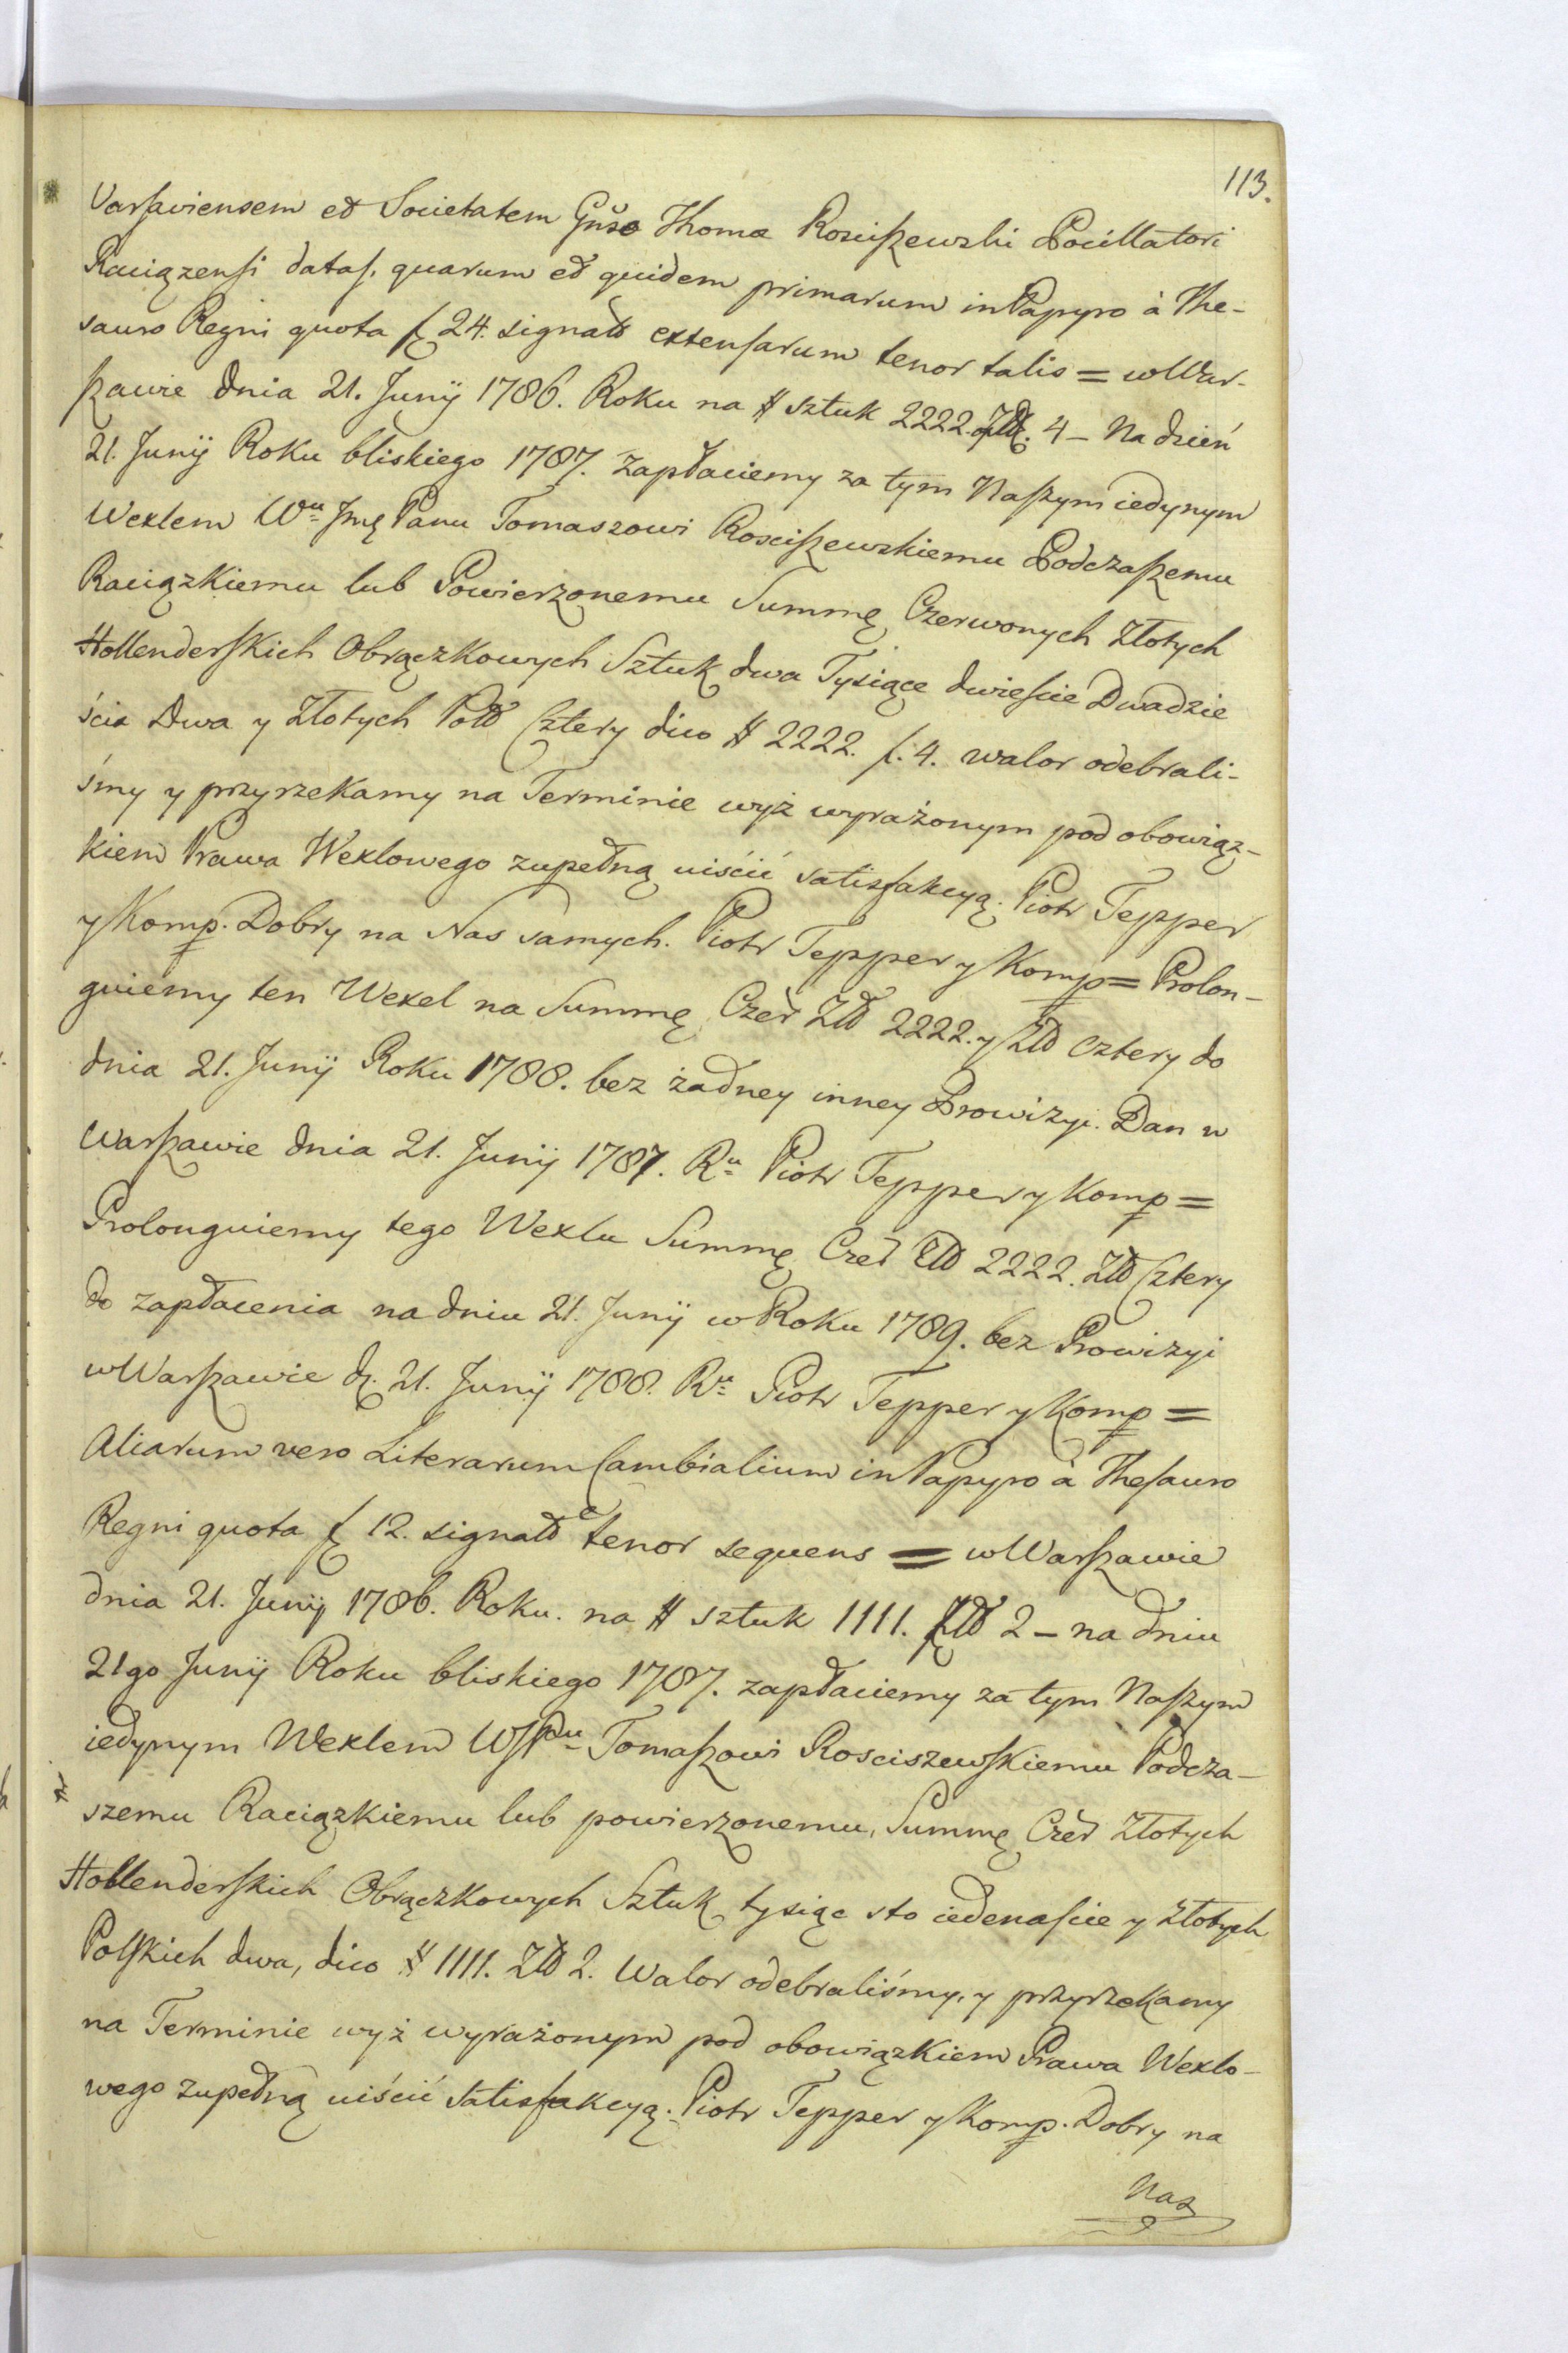 113.
Varsaviensem et Societatem Gñso Thomæ Rosciszewski Pocillatori
Raciązensi datas, quarum et quidem primarum in Papyro à The-
sauro Regni quota f 24. signatt extensarum tenor talis = w War-
szawie dnia 21. Junÿ 1786. Roku na # sztuk 2222. Złł. 4 – Na dzień
21. Junÿ Roku bliskiego 1787. zapłaciemy za tym Naszym iedynym
Wexlem Wu Jmę Panu Tomaszowi Rosciszewskiemu Podczaszemu
Raciązkiemu lub Powierzonemu Summę Czerwonych Złotych
Hollenderskich Obrączkowych Sztuk dwa Tysiące dwieście Dwadzie
ścia Dwa y Złotych Poll Cztery dico # 2222. f. 4. walor odebrali-
śmy y przyrzekamy na Terminie wyż wyrażonym pod obowiąz-
kiem Prawa Wexlowego zupełną uiścić satisfakcyą. Piotr Tepper
y Komp. Dobry na Nas samych. Piotr Tepper y Komp = Prolon-
guiemy ten Wexel na Summę Czer Złł 2222. y Złł cztery do
dnia 21. Junÿ Roku 1788. bez żadney inney Prowizyi. Dan w
Warszawie dnia 21. Junÿ 1787. Ru Piotr Tepper y Komp =
Prolonguiemy tego Wexlu Summę Czer Złł 2222. Złł Cztery
do zapłacenia na dniu 21. Junÿ w Roku 1789. bez Prowizyi
w Warszawie d. 21. Junÿ 1788. Ru Piotr Tepper y Komp =
Aliarum vero Literarum Cambialium in Papyro à Thesauro
Regni quota f 12. signatt e tenor sequens = w Warszawie
dnia 21. Junÿ 1786. Roku. na # sztuk 1111. Złł 2 – na dniu
21go Junÿ Roku bliskiego 1787. zapłaciemy za tym Naszym
iedynym Wexlem WJPu Tomaszowi Rosciszewskiemu Podcza-
szemu Raciązkiemu lub powierzonemu, Summę Czer Złotych
Hollenderskich Obrączkowych Sztuk tysiąc sto iedenascie y Złotych
Polskich dwa, dico # 1111. Złł 2. Walor odebraliśmy, y przyrzekamy
na Terminie wyż wyrażonym pod obowiązkiem Prawa Wexlo-
wego zupełną uiścić Satisfakcyą. Piotr Tepper y Komp. Dobry na
Nas